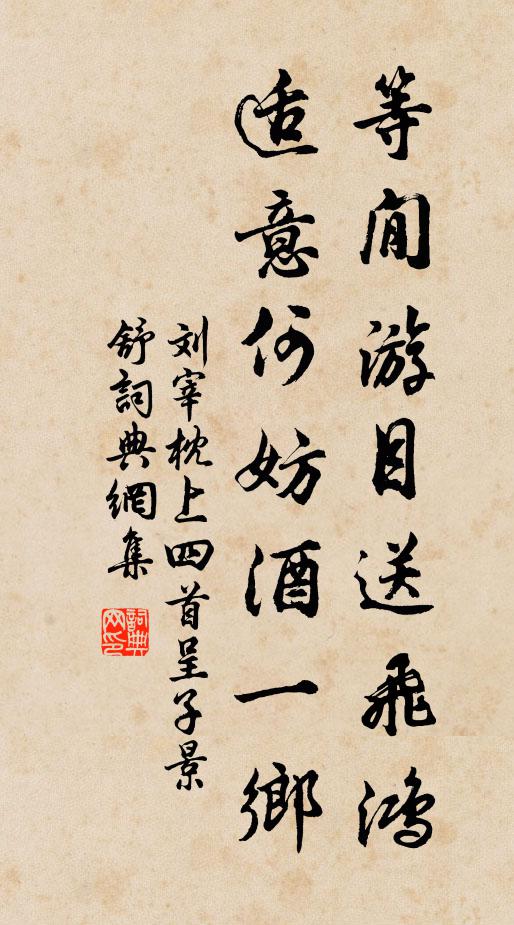 等閒游目送飛鴻
适意何妨酒一鄉
刘宰枕上四首呈子景
舒詞典網集
詞典网印